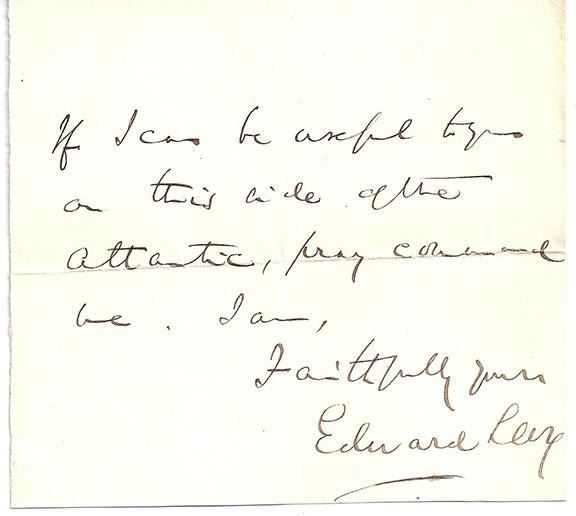 If I can be useful to you
on this side of the
Atlantic, pray command
me. I am,
Faithfully yours
Edward Levy